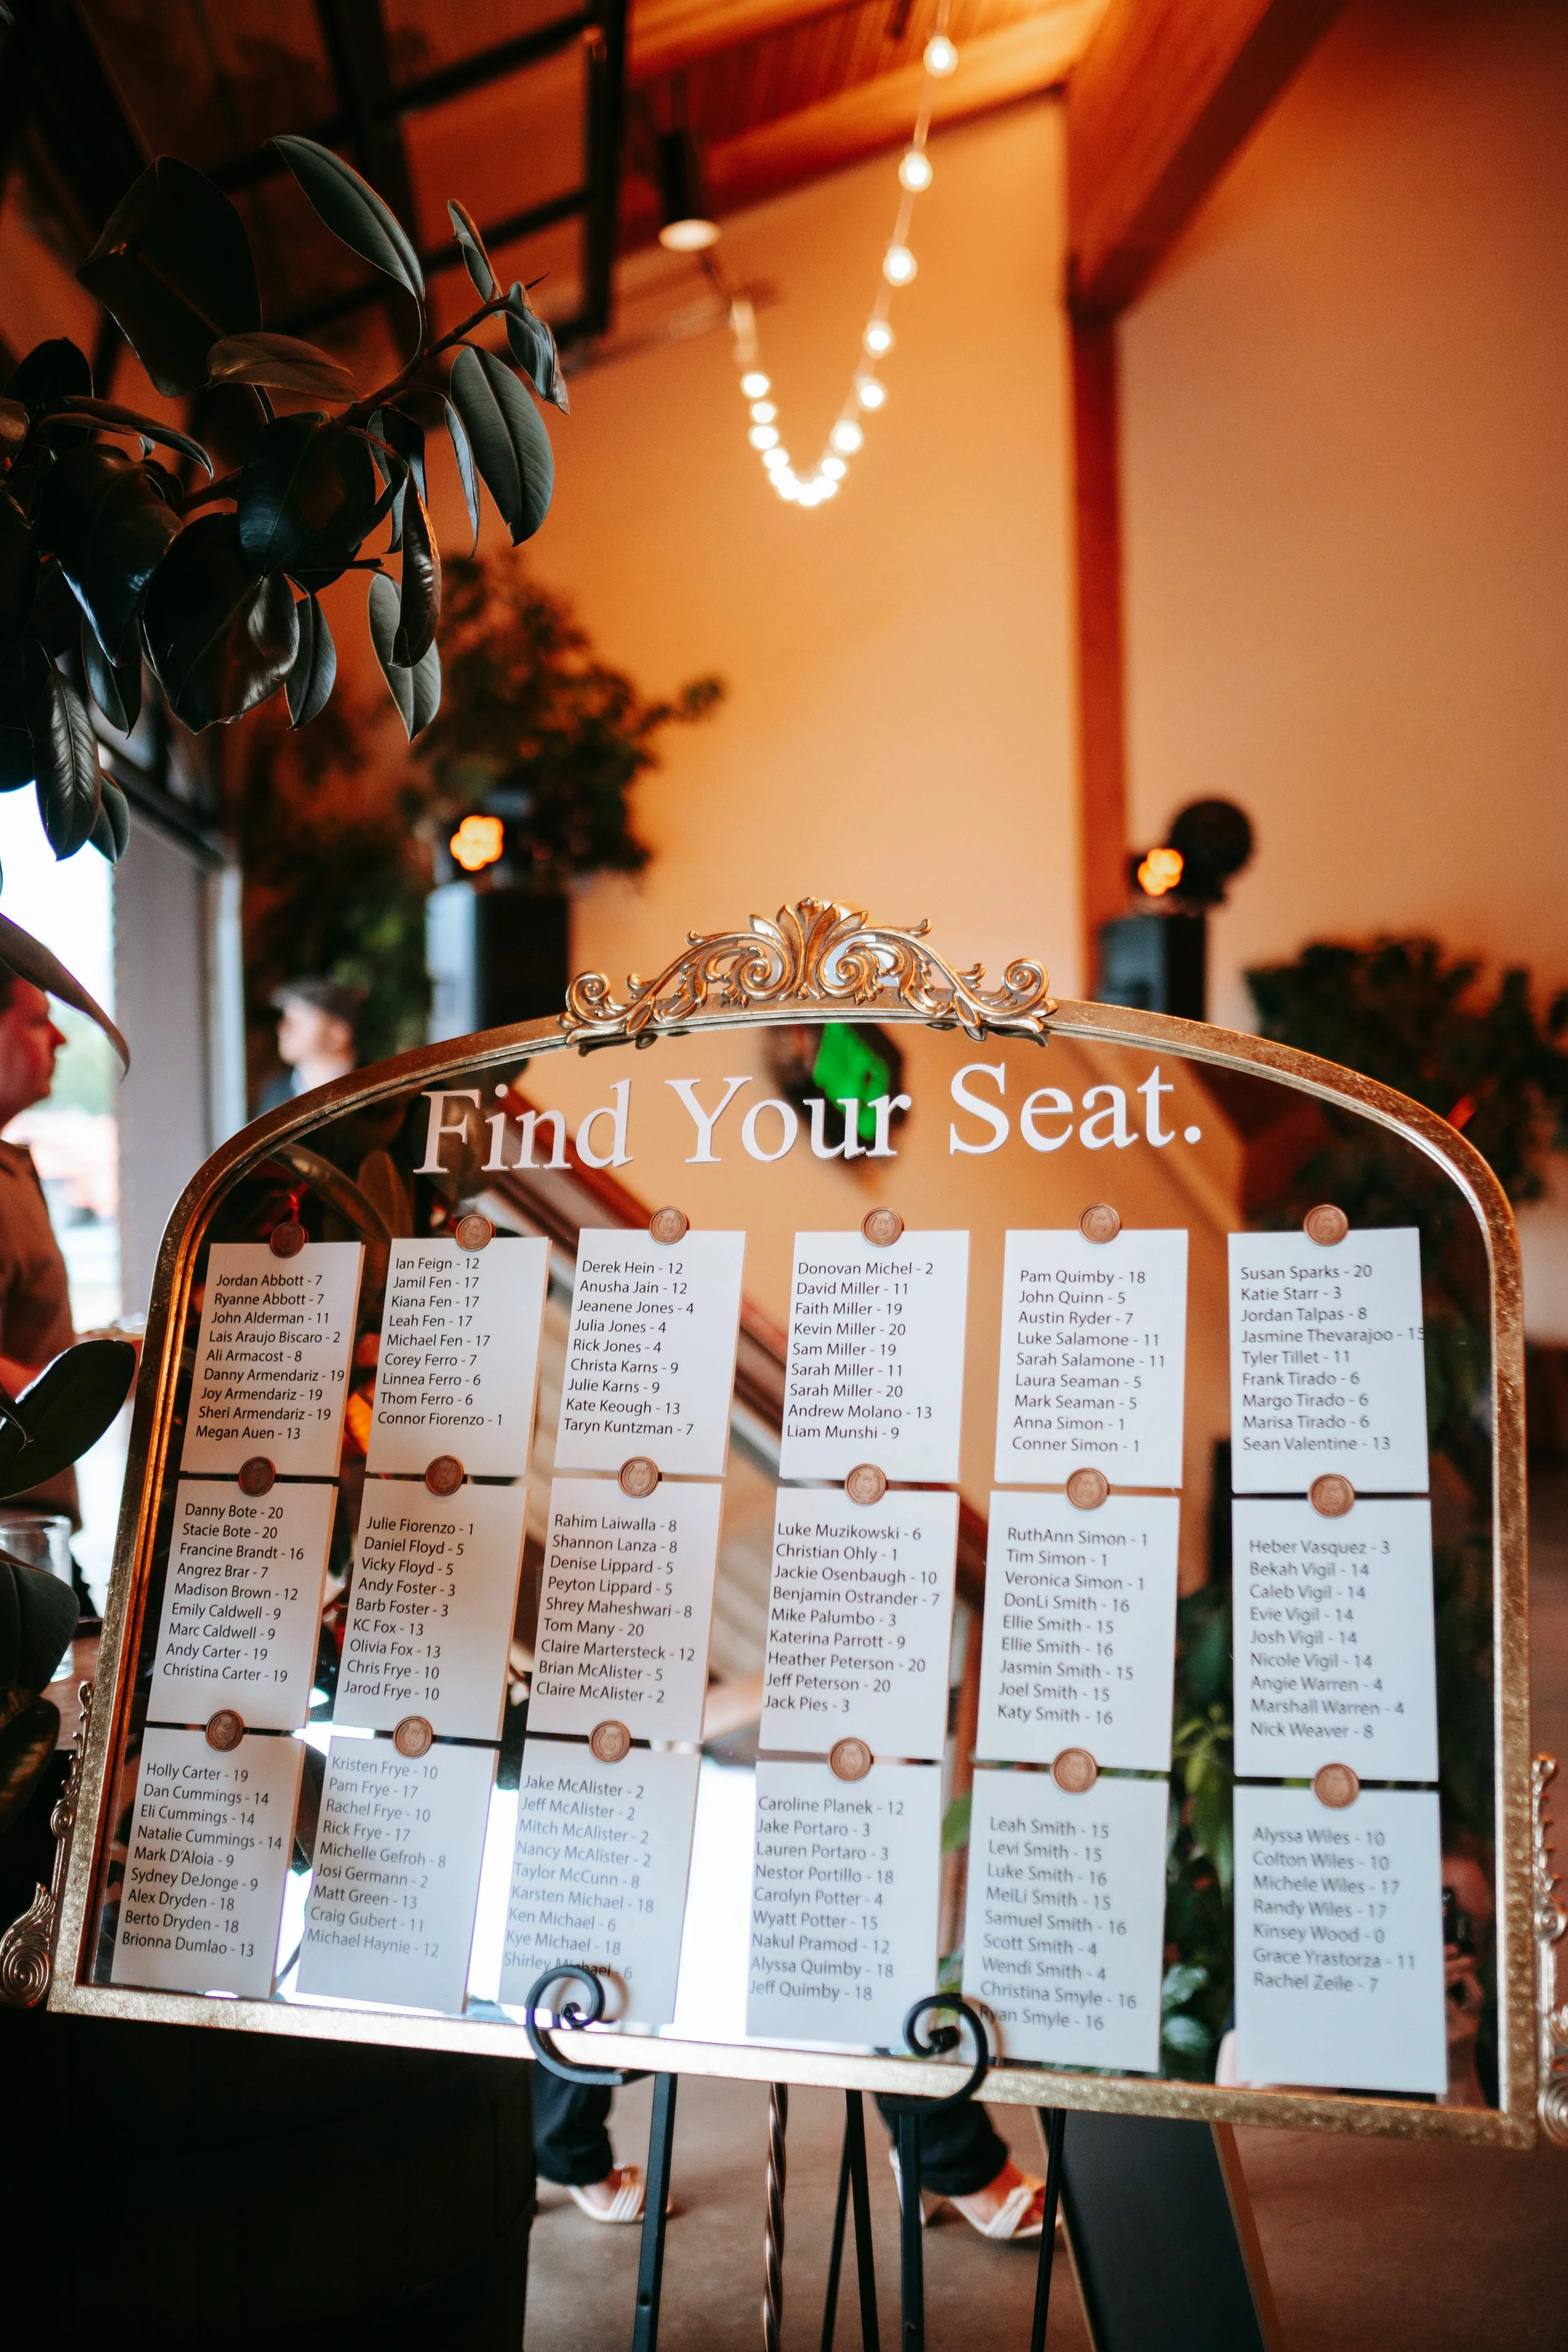 Find Your Seat.
Jordan Abbott - 7
Ryanne Abbott - 7
John Alderman - 11
Lais Araujo Biscaro - 2
Ali Armacost - 8
Danny Armendariz - 19
Joy Armendariz - 19
Sheri Armendariz - 19
Megan Auen - 13
Danny Bote - 20
Stacie Bote - 20
Francine Brandt - 16
Angrez Brar - 7
Madison Brown - 12
Emily Caldwell - 9
Marc Caldwell - 9
Andy Carter - 19
Christina Carter - 19
Holly Carter - 19
Dan Cummings - 14
Eli Cummings - 14
Natalie Cummings - 14
Mark D'Aloia - 9
Sydney DeJonge - 9
Alex Dryden - 18
Berto Dryden - 18
Brionna Dumlao - 13
Ian Feign - 12
Jamil Fen - 17
Kiana Fen - 17
Leah Fen - 17
Michael Fen - 17
Corey Ferro - 7
Linnea Ferro - 6
Thom Ferro - 6
Connor Fiorenzo - 1
Julie Fiorenzo - 1
Daniel Floyd - 5
Vicky Floyd - 5
Andy Foster - 3
Barb Foster - 3
KC Fox - 13
Olivia Fox - 13
Chris Frye - 10
Jarod Frye - 10
Kristen Frye - 10
Pam Frye - 17
Rachel Frye - 10
Rick Frye - 17
Michelle Gefroh - 8
Josi Germann - 2
Matt Green - 13
Craig Gubert - 11
Michael Haynie - 12
Derek Hein - 12
Anusha Jain - 12
Jeanene Jones - 4
Julia Jones - 4
Rick Jones - 4
Christa Karns - 9
Julie Karns - 9
Kate Keough - 13
Taryn Kuntzman - 7
Rahim Laiwalla - 8
Shannon Lanza - 8
Denise Lippard - 5
Peyton Lippard - 5
Shrey Maheshwari - 8
Tom Many - 20
Claire Martersteck - 12
Brian McAlister - 5
Claire McAlister - 2
Jake McAlister - 2
Jeff McAlister - 2
Mitch McAlister - 2
Nancy McAlister - 2
Taylor McCunn - 8
Karsten Michael - 18
Ken Michael - 6
Kye Michael - 18
Shirley Michael - 6
Donovan Michel - 2
David Miller - 11
Faith Miller - 19
Kevin Miller - 20
Sam Miller - 19
Sarah Miller - 11
Sarah Miller - 20
Andrew Molano - 13
Liam Munshi - 9
Luke Muzikowski - 6
Christian Ohly - 1
Jackie Osenbaugh - 10
Benjamin Ostrander - 7
Mike Palumbo - 3
Katerina Parrott - 9
Heather Peterson - 20
Jeff Peterson - 20
Jack Pies - 3
Caroline Planek - 12
Jake Portaro - 3
Lauren Portaro - 3
Nestor Portillo - 18
Carolyn Potter - 4
Wyatt Potter - 15
Nakul Pramod - 12
Alyssa Quimby - 18
Jeff Quimby - 18
Pam Quimby - 18
John Quinn - 5
Austin Ryder - 7
Luke Salamone - 11
Sarah Salamone - 11
Laura Seaman - 5
Mark Seaman - 5
Anna Simon - 1
Conner Simon - 1
RuthAnn Simon - 1
Tim Simon - 1
Veronica Simon - 1
DonLi Smith - 16
Ellie Smith - 15
Ellie Smith - 16
Jasmin Smith - 15
Joel Smith - 15
Katy Smith - 16
Leah Smith - 15
Levi Smith - 15
Luke Smith - 16
MeiLi Smith - 15
Samuel Smith - 16
Scott Smith - 4
Wendi Smith - 4
Christina Smyle - 16
Ryan Smyle - 16
Susan Sparks - 20
Katie Starr - 3
Jordan Talpas - 8
Jasmine Thevarajoo - 15
Tyler Tillet - 11
Frank Tirado - 6
Margo Tirado - 6
Marisa Tirado - 6
Sean Valentine - 13
Heber Vasquez - 3
Bekah Vigil - 14
Caleb Vigil - 14
Evie Vigil - 14
Josh Vigil - 14
Nicole Vigil - 14
Angie Warren - 4
Marshall Warren - 4
Nick Weaver - 8
Alyssa Wiles - 10
Colton Wiles - 10
Michele Wiles - 17
Randy Wiles - 17
Kinsey Wood - 0
Grace Yrastorza - 11
Rachel Zeile - 7